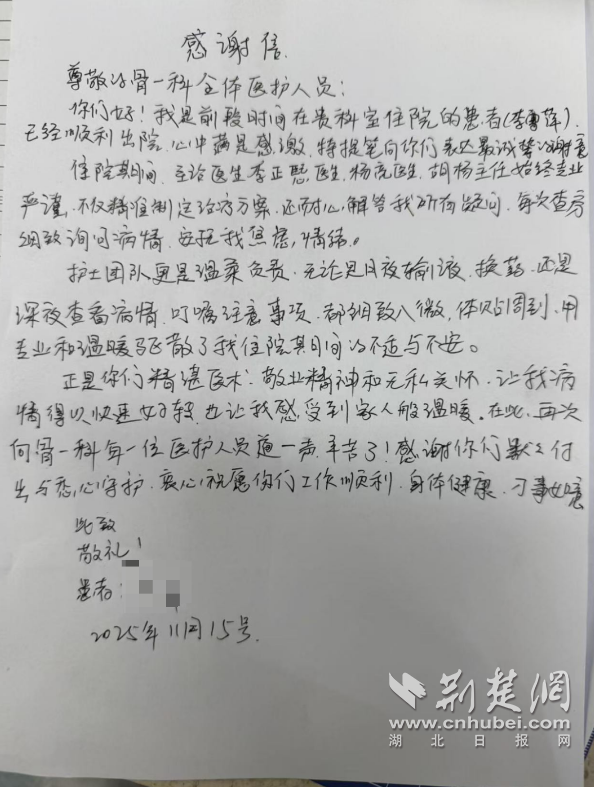 感谢信.
尊敬的骨一科全体医护人员:
你们好!我是前段时间在贵科室住院的患者(李 萍).
已经顺利出院,心中满是感激.特提笔向你们表达最诚挚的谢意
住院期间.主治医生李正 医生,杨亮医生,胡杨主任始终专业
严谨,不仅精准制定治疗方案.还耐心解答我所有疑问.每次查房
细致询问病情.安抚我焦虑,情绪。
护士团队更是温柔负责.无论是日夜输液.换药.还是
深夜查看病情.叮嘱注意事项.都细致入微.体贴周到.用
专业和温暖驱散了我住院期间的不适与不安。
正是你们精湛医术.敬业精神和无私关怀.让我病
情得以快速好转.也让我感受到家人般温暖。在此,再次
向骨一科每一位医护人员道一声.辛苦了!感谢你们默々付
出与悉心守护.衷心祝愿你们工作顺利.身体健康.万事如意
此致
敬礼!
患者:
2025年11月15号.
荆楚网
www.cnhubei.com
湖北日报网